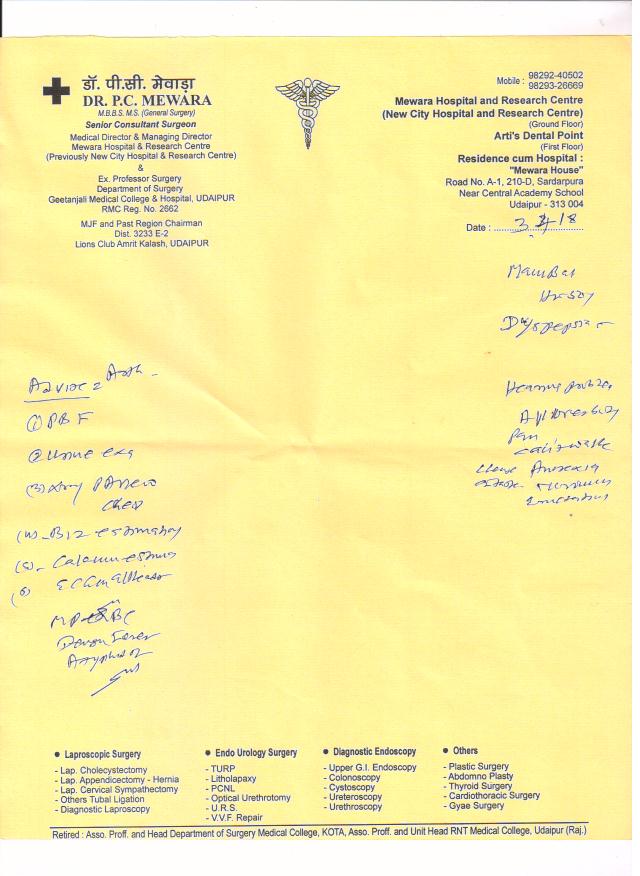 डॉ. पी.सी. मेवाड़ा
DR. P.C. MEWARA
M.B.B.S. M.S. (General Surgery)
Senior Consultant Surgeon
Medical Director & Managing Director
Mewara Hospital & Research Centre
(Previously New City Hospital & Research Centre)
&
Ex. Professor Surgery
Department of Surgery
Geetanjali Medical College & Hospital, UDAIPUR
RMC Reg. No. 2662
MJF and Past Region Chairman
Dist. 3233 E-2
Lions Club Amrit Kalash, UDAIPUR
Mobile : 98292-40502
98293-26669
Mewara Hospital and Research Centre
(New City Hospital and Research Centre)
(Ground Floor)
Arti's Dental Point
(First Floor)
Residence cum Hospital :
"Mewara House"
Road No. A-1, 210-D, Sardarpura
Near Central Academy School
Udaipur - 313 004
Date :
Dyspepsia
Advise
(1) PBF
(2) Urine
(3) Xray
Chest
(4) B12
(5)
(6)
Pain
Anorexia
● Laproscopic Surgery
- Lap. Cholecystectomy
- Lap. Appendicectomy - Hernia
- Lap. Cervical Sympathectomy
- Others Tubal Ligation
- Diagnostic Laproscopy
● Endo Urology Surgery
- TURP
- Litholapaxy
- PCNL
- Optical Urethrotomy
- U.R.S.
- V.V.F. Repair
● Diagnostic Endoscopy
- Upper G.I. Endoscopy
- Colonoscopy
- Cystoscopy
- Ureteroscopy
- Urethroscopy
● Others
- Plastic Surgery
- Abdomno Plasty
- Thyroid Surgery
- Cardiothoracic Surgery
- Gyae Surgery
Retired : Asso. Proff. and Head Department of Surgery Medical College, KOTA, Asso. Proff. and Unit Head RNT Medical College, Udaipur (Raj.)